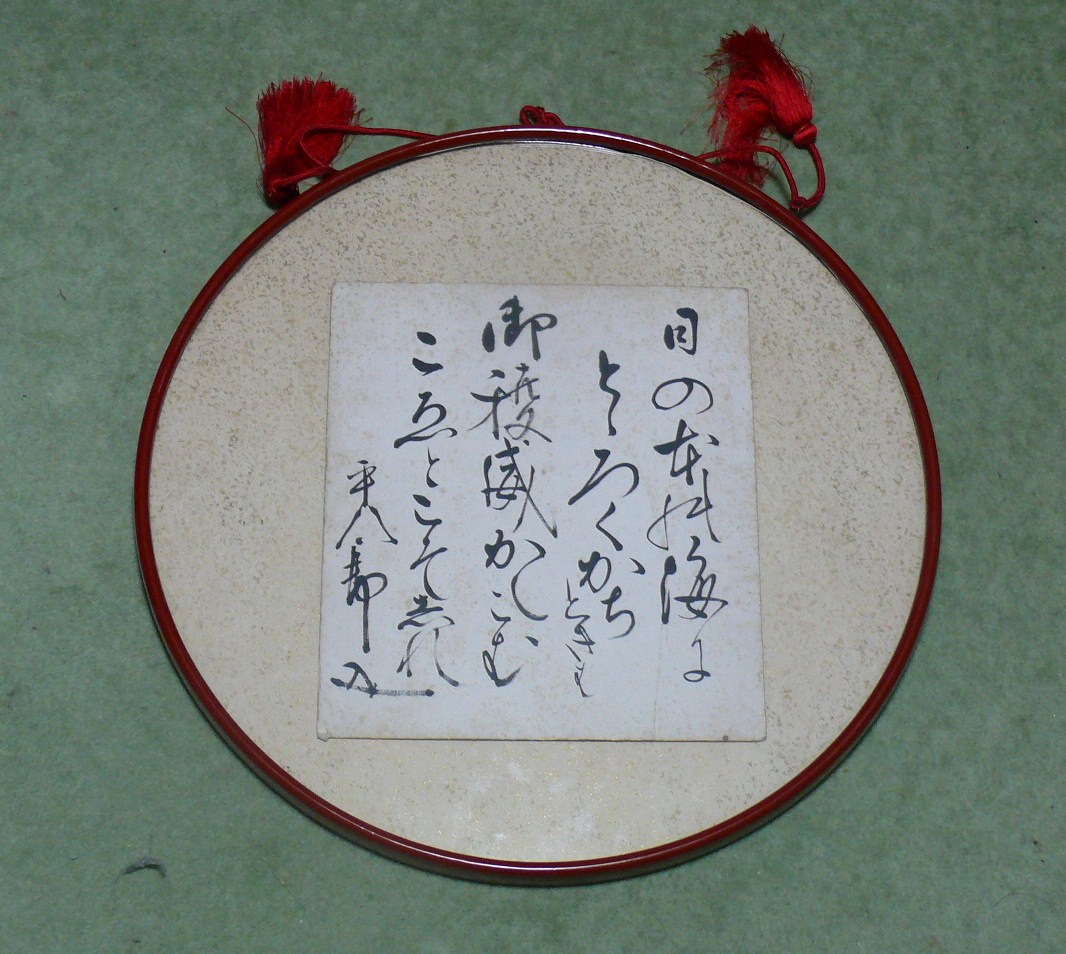 日の本能海に
とゝろくかちときは
御稜威かしこむ
こゑとこそ志れ
平八郎